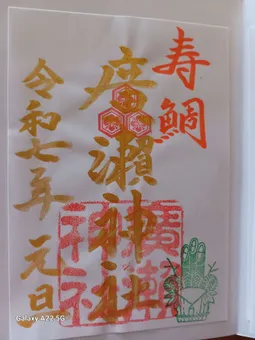 寿鯛
廣瀬神社
令和七年 元旦
廣瀬
神社
Galaxy A22 5G